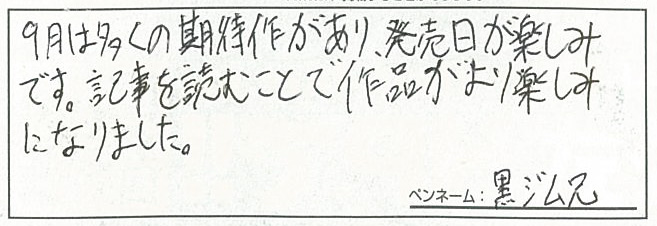 9月は多くの期待作があり、発売日が楽しみ
です。記事を読むことで作品がより楽しみ
になりました。
ペンネーム：黒ジム兄